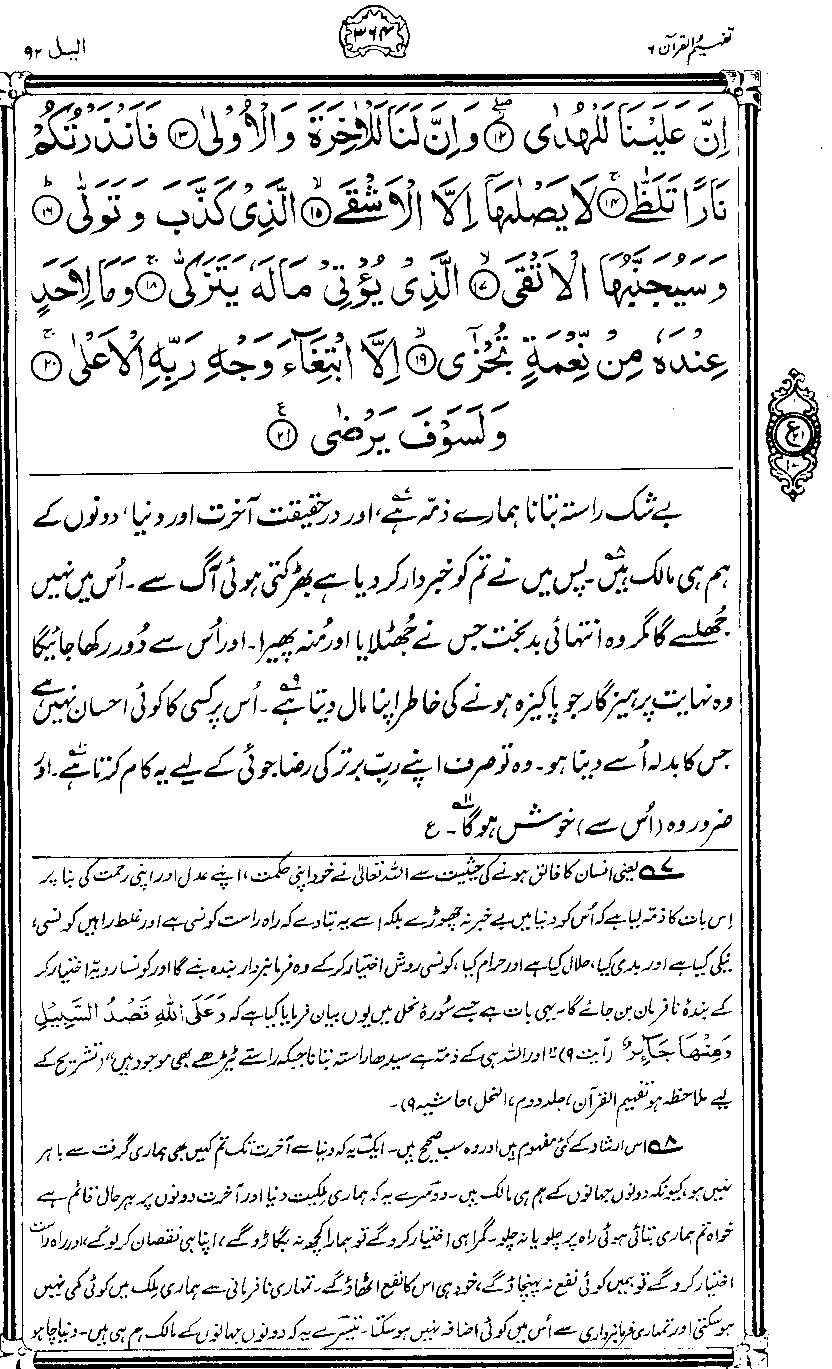 تفہیم القرآن ۶
۳۶۴
الیل ۹۲
اِنَّ عَلَیْنَا لَلْهُدٰى ۝۱۲ وَاِنَّ لَنَا لَلْاٰخِرَةَ وَالْاُوْلٰى ۝۱۳ فَاَنْذَرْتُكُمْ
نَارًا تَلَظّٰى ۝۱۴ لَا یَصْلٰىهَاۤ اِلَّا الْاَشْقَى ۝۱۵ الَّذِیْ كَذَّبَ وَ تَوَلّٰى ۝۱۶
وَ سَیُجَنَّبُهَا الْاَتْقَى ۝۱۷ الَّذِیْ یُؤْتِیْ مَالَهٗ یَتَزَكّٰى ۝۱۸ وَمَا لِاَحَدٍ
عِنْدَهٗ مِنْ نِّعْمَةٍ تُجْزٰۤى ۝۱۹ اِلَّا ابْتِغَآءَ وَجْهِ رَبِّهِ الْاَعْلٰى ۝۲۰
وَ لَسَوْفَ یَرْضٰى ۝۲۱
بے شک راستہ بتانا ہمارے ذمّہ ہے۷، اور درحقیقت آخرت اور دنیا، دونوں کے
ہم ہی مالک ہیں۸۔ پس میں نے تم کو خبردار کر دیا ہے بھڑکتی ہوئی آگ سے۔ اُس میں نہیں
جُھلسے گا مگر وہ انتہائی بدبخت جس نے جُھٹلایا اور مُنہ پھیرا۔ اور اُس سے دُور رکھا جائیگا
وہ نہایت پرہیزگار جو پاکیزہ ہونے کی خاطر اپنا مال دیتا ہے۹۔ اُس پر کسی کا کوئی احسان نہیں ہے
جس کا بدلہ اُسے دینا ہو۔ وہ تو صرف اپنے ربِّ برتر کی رضا جوئی کے لیے یہ کام کرتا ہے۱۰۔ اور
ضرور وہ (اُس سے) خوش ہوگا۱۱۔ ع
۷ یعنی انسان کا خالق ہونے کی حیثیت سے اللہ تعالیٰ نے خود اپنی حکمت، اپنے عدل اور اپنی رحمت کی بنا پر
اِس بات کا ذمّہ لیا ہے کہ اُس کو دنیا میں بے خبر نہ چھوڑے بلکہ اسے یہ بتا دے کہ راہ راست کونسی ہے اور غلط راہیں کونسی،
نیکی کیا ہے اور بدی کیا، حلال کیا ہے اور حرام کیا، کونسی روش اختیار کر کے وہ فرمانبردار بندہ بنے گا اور کونسا رویّہ اختیار کر
کے بندۂ نافرمان بن جائے گا۔ یہی بات ہے جسے سُورۂ نحل میں یوں بیان فرمایا گیا ہے کہ وَعَلَى اللهِ قَصْدُ السَّبِیْلِ
وَمِنْهَا جَآئِرٌ (آیت ۹) "اور اللہ ہی کے ذمّہ ہے سیدھا راستہ بتانا جبکہ راستے ٹیڑھے بھی موجود ہیں" (تشریح کے
لیے ملاحظہ ہو تفہیم القرآن، جلد دوم، النحل، حاشیہ ۹)۔
۸ اس ارشاد کے کئی مفہوم ہیں اور وہ سب صحیح ہیں۔ ایک یہ کہ دنیا سے آخرت تک تم کہیں بھی ہماری گرفت سے باہر
نہیں ہو، کیونکہ دونوں جہانوں کے ہم ہی مالک ہیں۔ دوسرے یہ کہ ہماری ملکیت دنیا اور آخرت دونوں پر بہرحال قائم ہے
خواہ تم ہماری بتائی ہوئی راہ پر چلو یا نہ چلو۔ گمراہی اختیار کرو گے تو ہمارا کچھ نہ بگاڑو گے، اپنا ہی نقصان کر لو گے، اور راہ راست
اختیار کرو گے تو ہمیں کوئی نفع نہ پہنچاؤ گے، خود ہی اس کا نفع اٹھاؤ گے۔ تمہاری نافرمانی سے ہماری مِلک میں کوئی کمی نہیں
ہو سکتی اور تمہاری فرمانبرداری سے اُس میں کوئی اضافہ نہیں ہو سکتا۔ تیسرے یہ کہ دونوں جہانوں کے مالک ہم ہی ہیں۔ دنیا چاہو